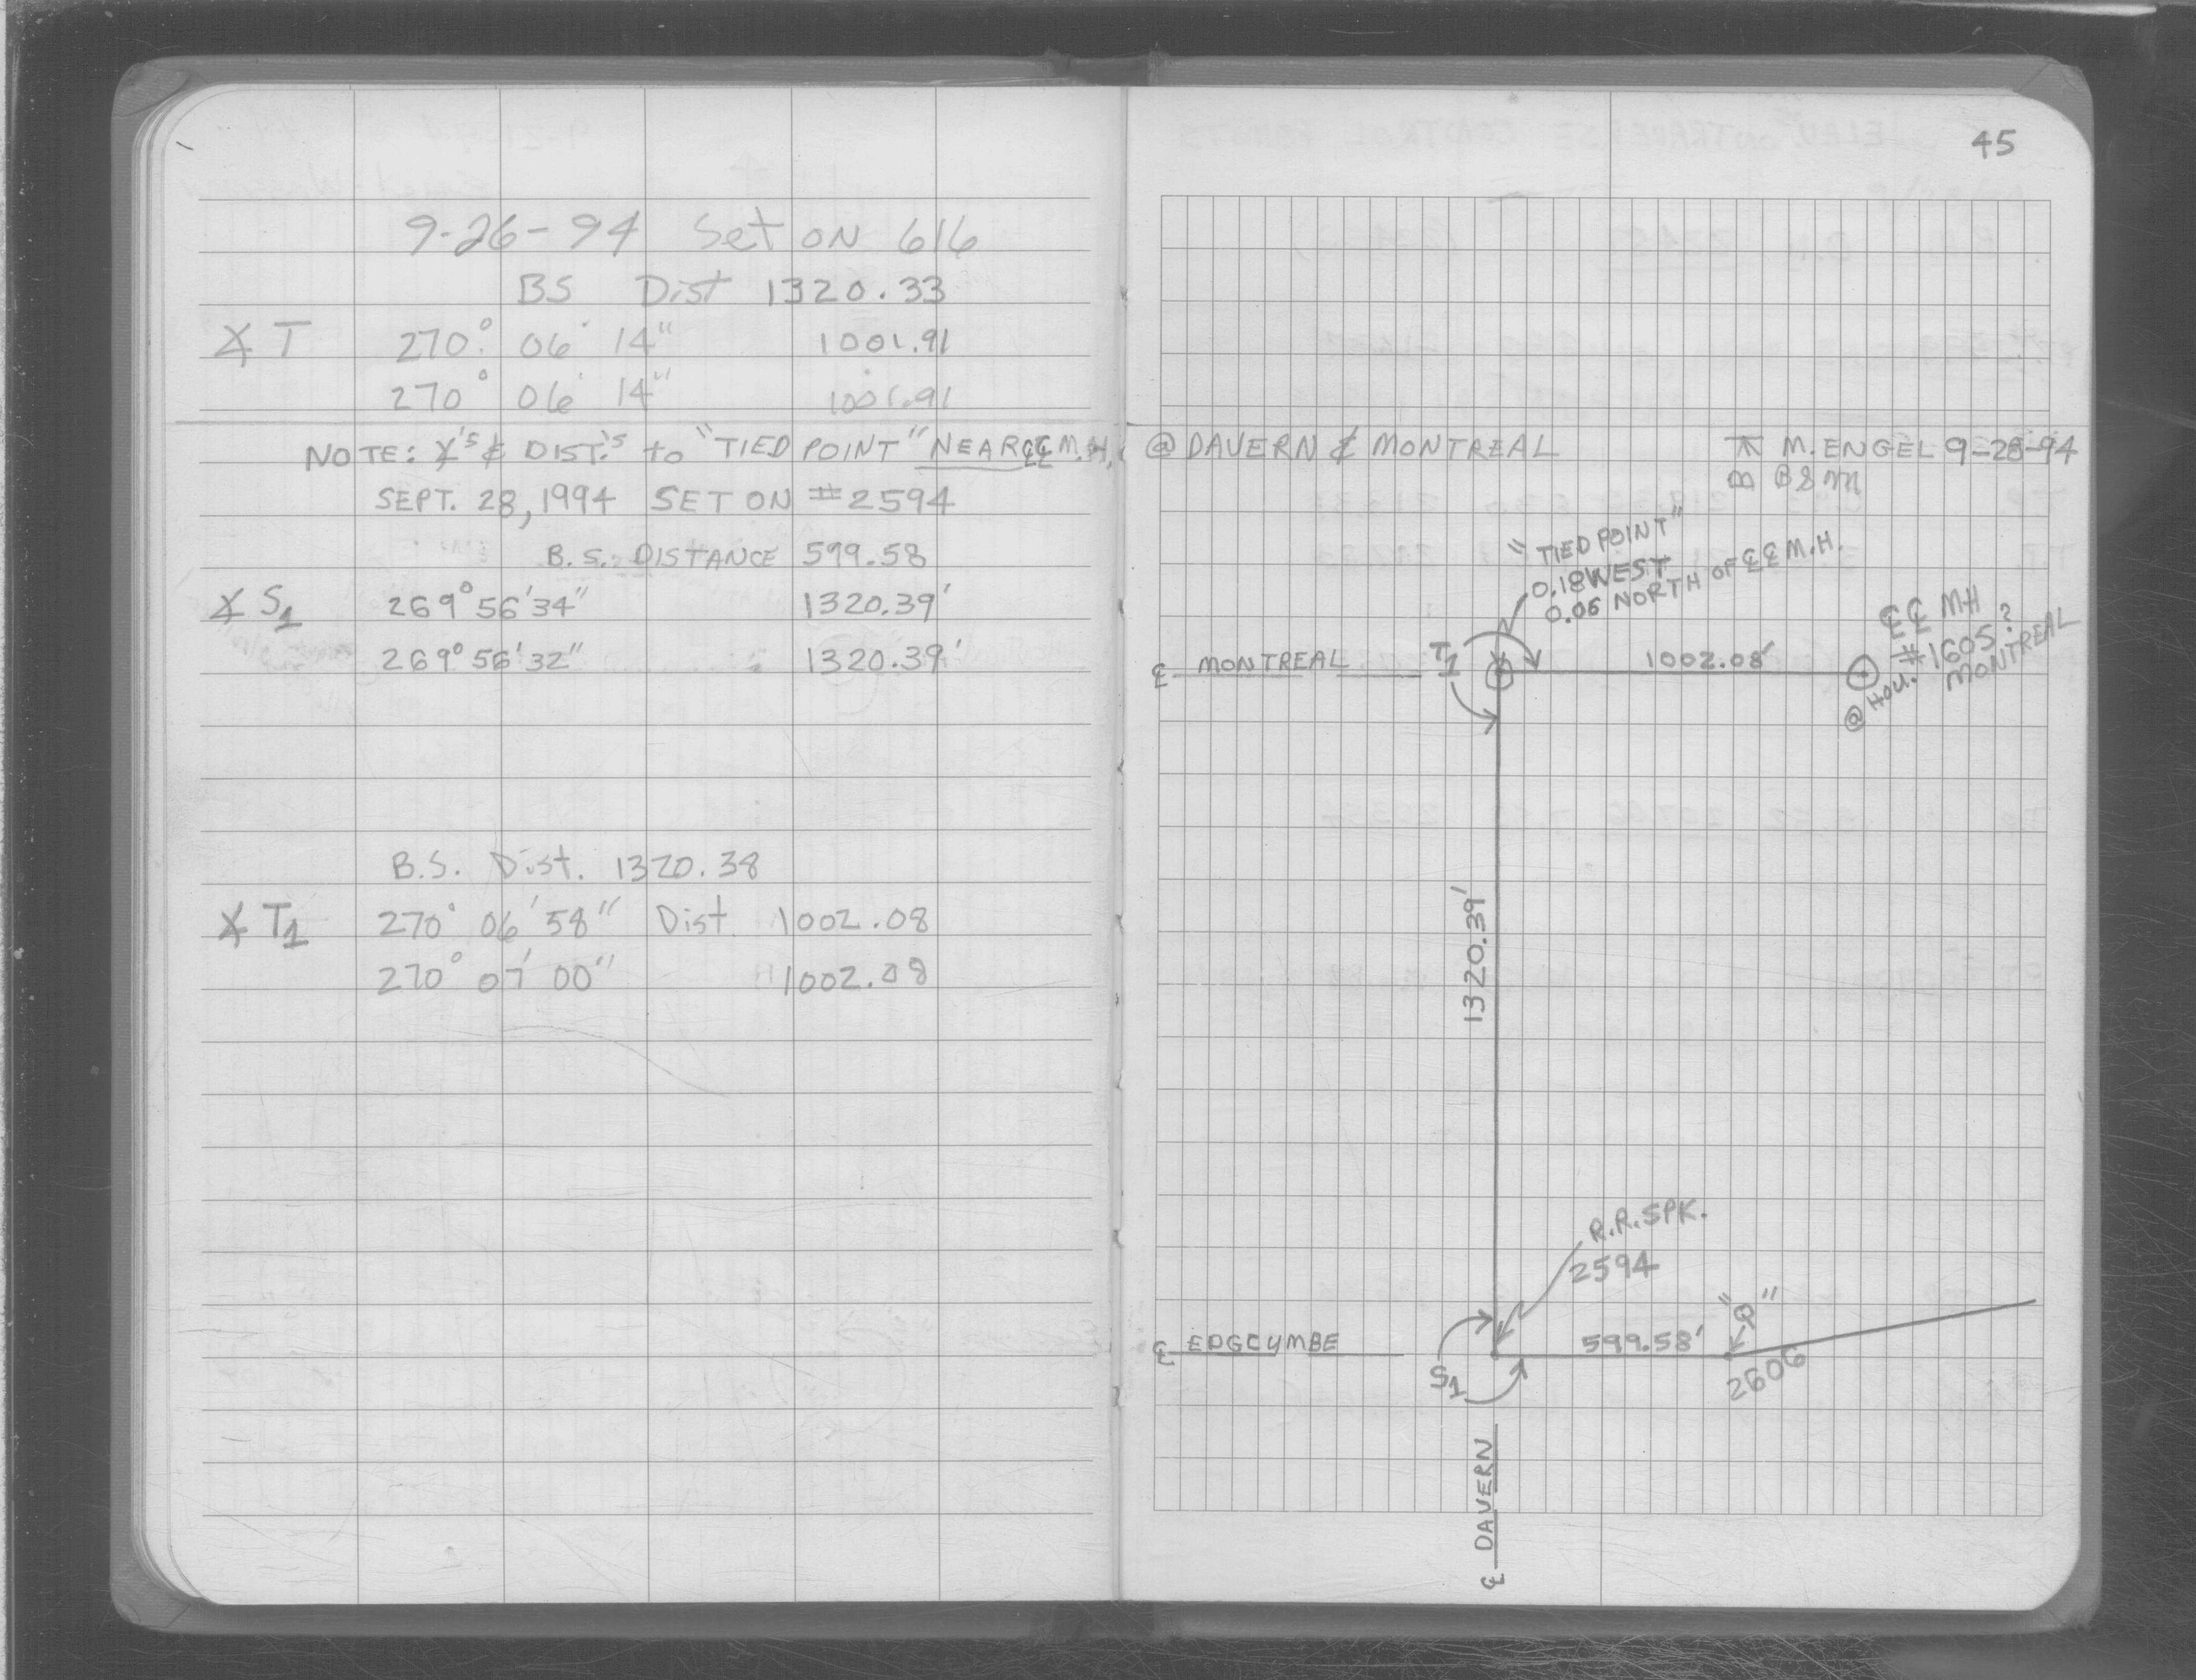 9-26-94 Set ON 616
BS Dist 1320.33
∡ T 270° 06' 14" 1001.91
270° 06' 14" 1001.91
NOTE: ∡'s & DIST.'s to "TIED POINT" NEAR ℄℄ M.H. @ DAVERN & MONTREAL
SEPT. 28, 1994 SET ON #2594
B.S. DISTANCE 599.58
∡ S1 269° 56' 34" 1320.39'
269° 56' 32" 1320.39'
B.S. Dist. 1320.38
∡ T1 270° 06' 58" Dist 1002.08
270° 07' 00" 1002.08
45
M. ENGEL 9-28-94
"TIED POINT"
0.18 WEST
0.06 NORTH OF ℄℄ M.H.
℄℄ MH
#1605?
@ HOU. MONTREAL
℄ MONTREAL
T1
1002.08'
1320.39'
R.R. SPK.
2594
℄ EDGCUMBE
S1
599.58'
2606
℄ DAVERN